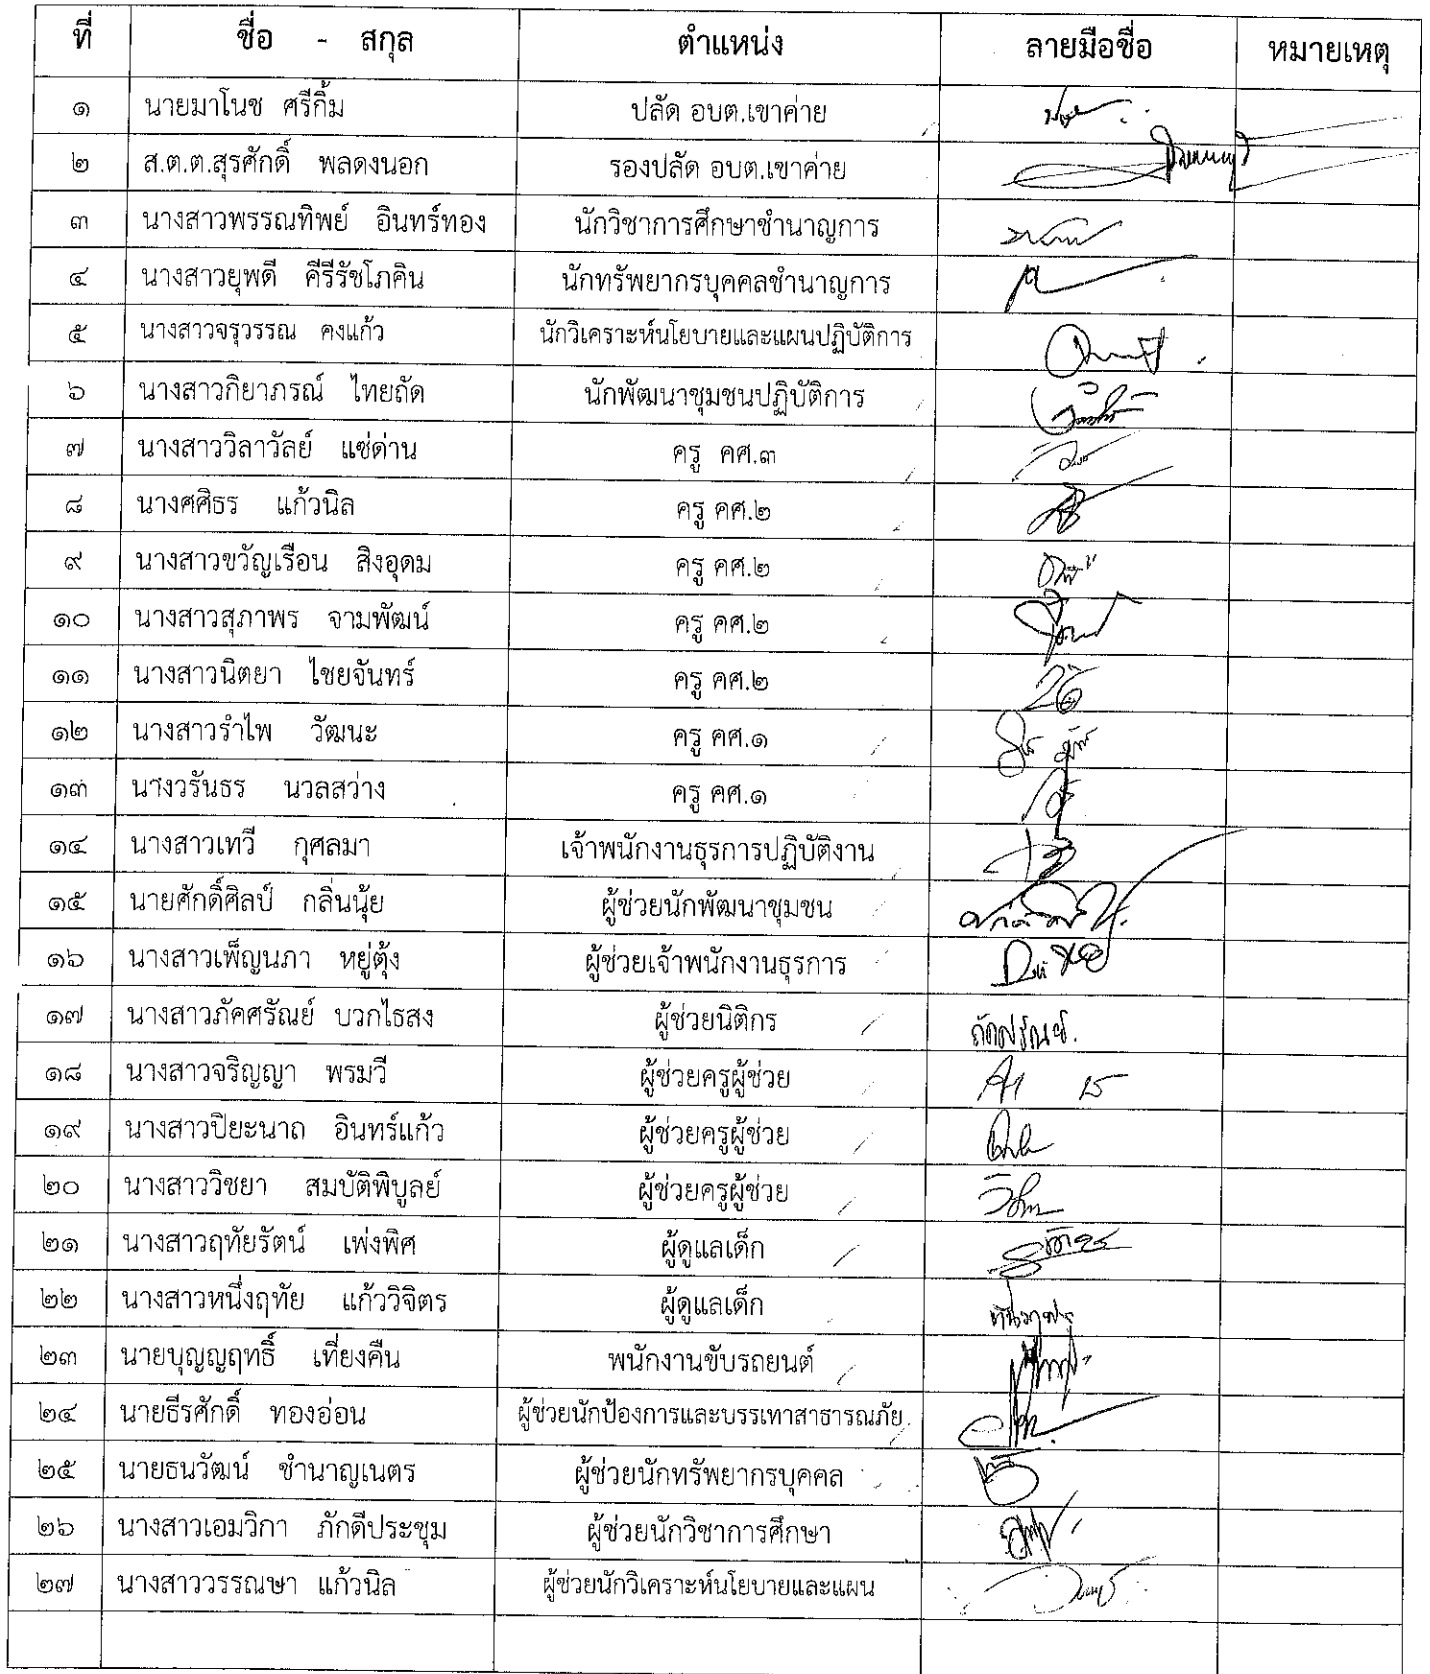 ที่ ชื่อ - สกุล ตำแหน่ง ลายมือชื่อ หมายเหตุ
๑ นายมาโนช ศรีกิ้ม ปลัด อบต.เขาค่าย
๒ ส.ต.ต.สุรศักดิ์ พลดงนอก รองปลัด อบต.เขาค่าย
๓ นางสาวพรรณทิพย์ อินทร์ทอง นักวิชาการศึกษาชำนาญการ
๔ นางสาวยุพดี คีรีรัชโภคิน นักทรัพยากรบุคคลชำนาญการ
๕ นางสาวจรุวรรณ คงแก้ว นักวิเคราะห์นโยบายและแผนปฏิบัติการ
๖ นางสาวกิยาภรณ์ ไทยถัด นักพัฒนาชุมชนปฏิบัติการ
๗ นางสาววิลาวัลย์ แซ่ด่าน ครู คศ.๓
๘ นางศศิธร แก้วนิล ครู คศ.๒
๙ นางสาวขวัญเรือน สิงอุดม ครู คศ.๒
๑๐ นางสาวสุภาพร จามพัฒน์ ครู คศ.๒
๑๑ นางสาวนิตยา ไชยจันทร์ ครู คศ.๒
๑๒ นางสาวรำไพ วัฒนะ ครู คศ.๑
๑๓ นางวรันธร นวลสว่าง ครู คศ.๑
๑๔ นางสาวเทวี กุศลมา เจ้าพนักงานธุรการปฏิบัติงาน
๑๕ นายศักดิ์ศิลป์ กลิ่นนุ้ย ผู้ช่วยนักพัฒนาชุมชน
๑๖ นางสาวเพ็ญนภา หยู่ตุ้ง ผู้ช่วยเจ้าพนักงานธุรการ
๑๗ นางสาวภัคศรัณย์ บวกไธสง ผู้ช่วยนิติกร ภัคศรัณย์.
๑๘ นางสาวจริญญา พรมวี ผู้ช่วยครูผู้ช่วย
๑๙ นางสาวปิยะนาถ อินทร์แก้ว ผู้ช่วยครูผู้ช่วย
๒๐ นางสาววิชยา สมบัติพิบูลย์ ผู้ช่วยครูผู้ช่วย
๒๑ นางสาวฤทัยรัตน์ เพ่งพิศ ผู้ดูแลเด็ก
๒๒ นางสาวหนึ่งฤทัย แก้ววิจิตร ผู้ดูแลเด็ก
๒๓ นายบุญญฤทธิ์ เที่ยงคืน พนักงานขับรถยนต์
๒๔ นายธีรศักดิ์ ทองอ่อน ผู้ช่วยนักป้องการและบรรเทาสาธารณภัย
๒๕ นายธนวัฒน์ ชำนาญเนตร ผู้ช่วยนักทรัพยากรบุคคล
๒๖ นางสาวเอมวิกา ภักดีประชุม ผู้ช่วยนักวิชาการศึกษา
๒๗ นางสาววรรณษา แก้วนิล ผู้ช่วยนักวิเคราะห์นโยบายและแผน